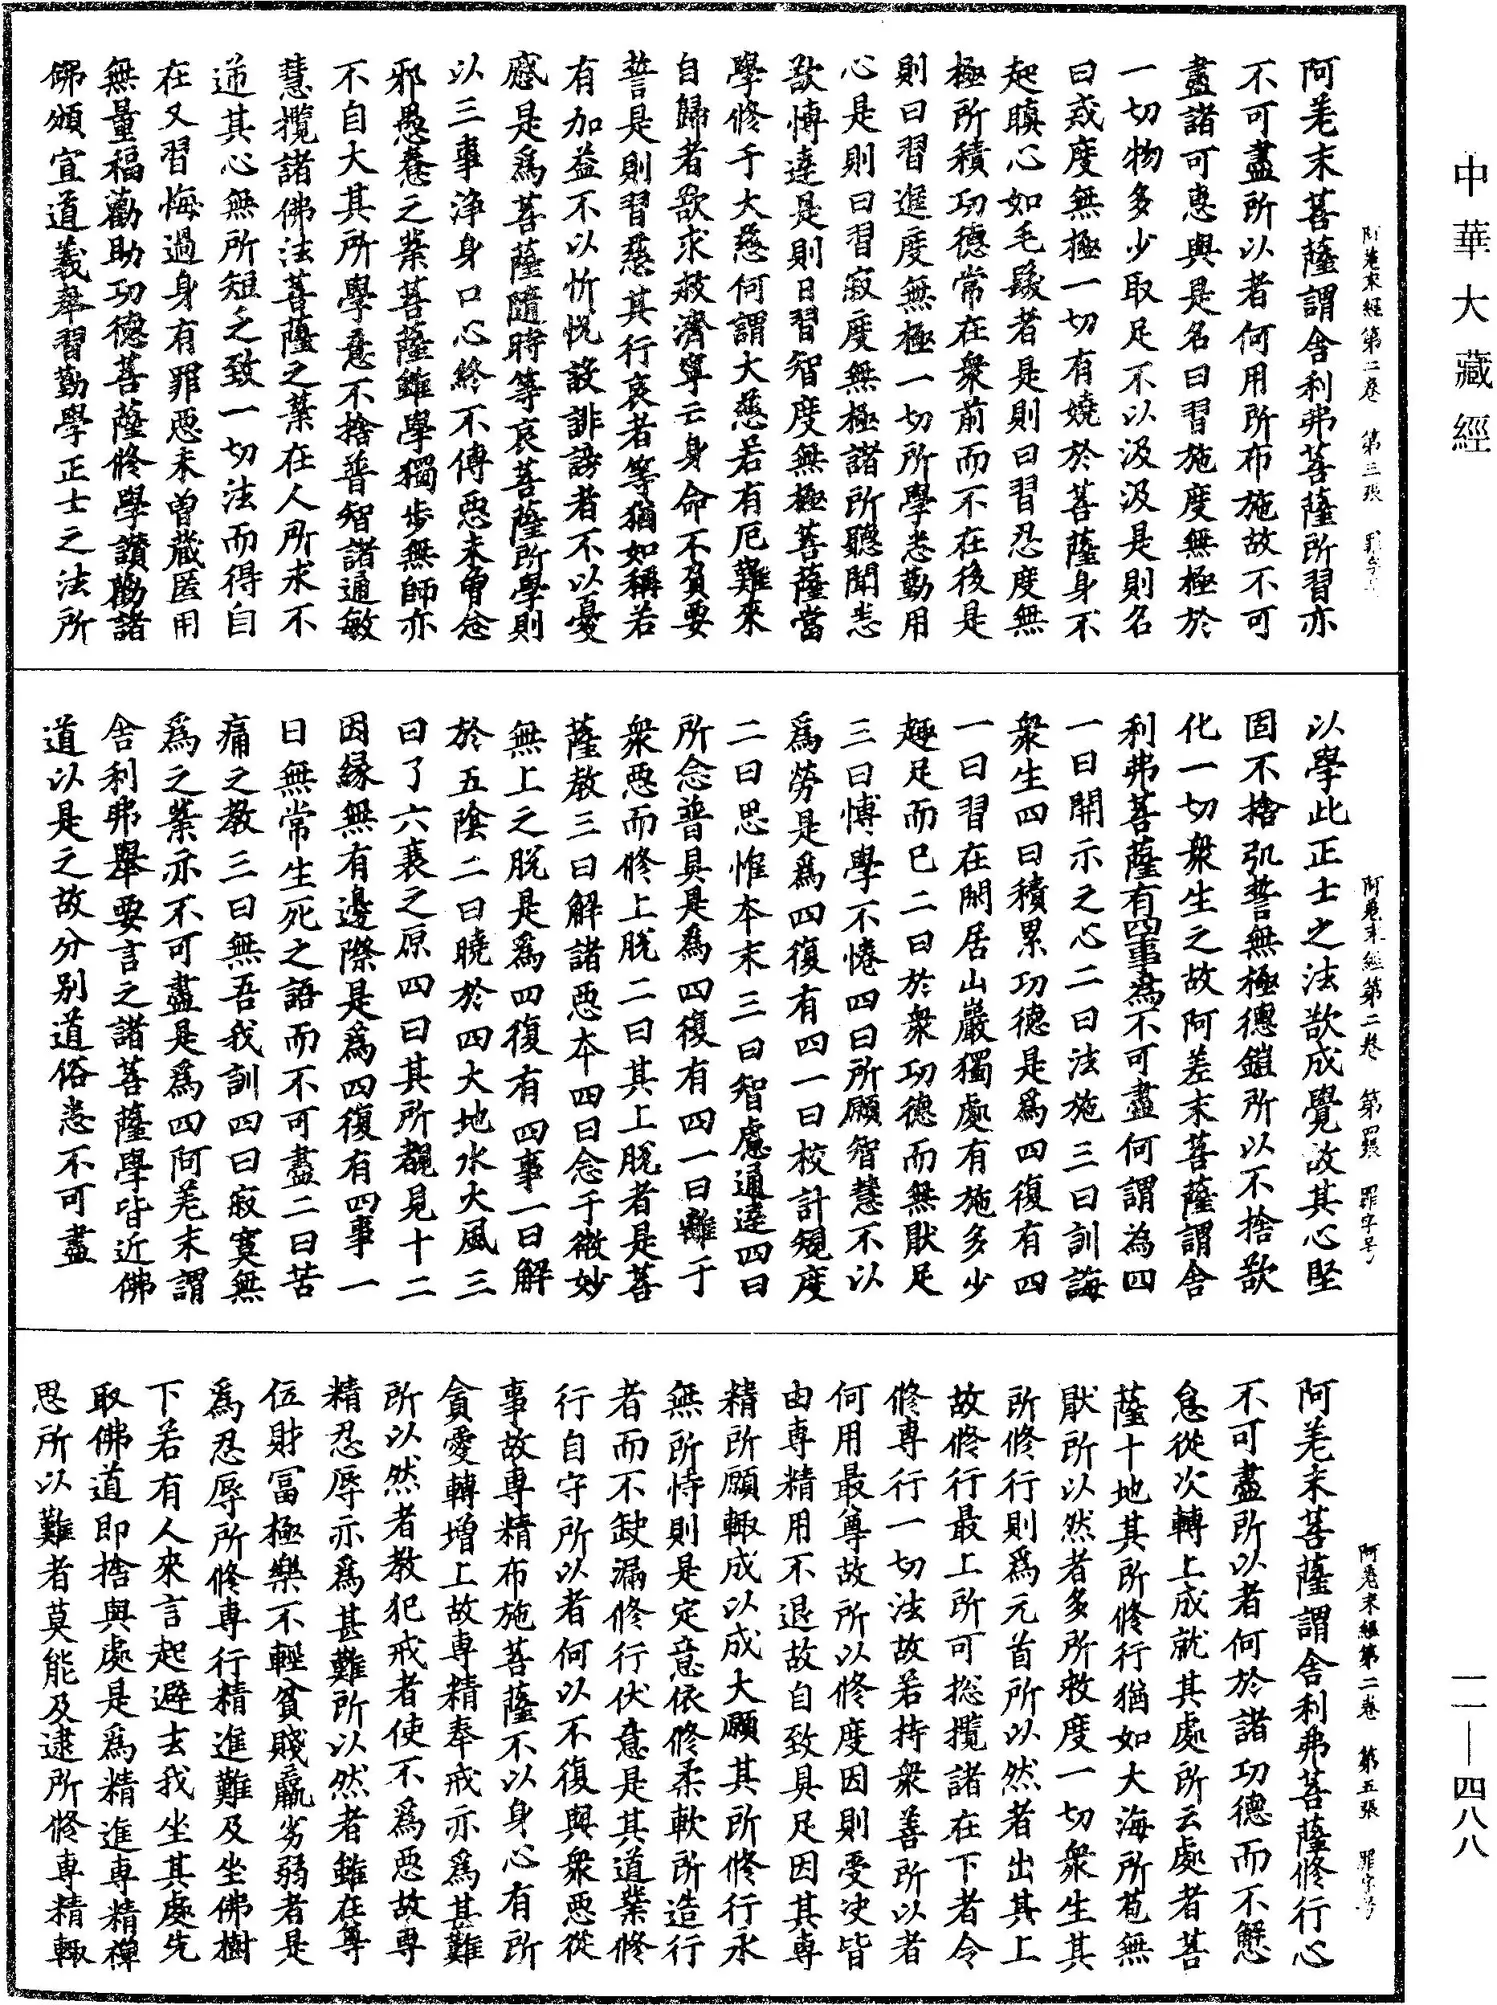 中華大藏經
阿差末經第二卷　第三張　罪字号
阿差末菩薩謂舍利弗菩薩所習亦
不可盡所以者何用所布施故不可
盡諸可惠與是名曰習施度無極於
一切物多少取足不以汲汲是則名
曰戒度無極一切有嬈於菩薩身不
起瞋心如毛髮者是則曰習忍度無
極所積功德常在衆前而不在後是
則曰習進度無極一切所學悉勤用
心是則曰習寂度無極諸所聽聞悉
欲博達是則曰習智度無極菩薩當
學修于大慈何謂大慈若有厄難來
自歸者欲求救濟寧亡身命不負要
誓是則習慈其行哀者等猶如稱若
有加益不以忻悅設誹謗者不以憂
慼是爲菩薩隨時等哀菩薩所學則
以三事淨身口心終不傳惡未曾念
邪愚憃之業菩薩雖學獨步無師亦
不自大其所學意不捨普智諸通敏
慧攬諸佛法菩薩之業在人所求不
逆其心無所短乏致一切法而得自
在又習悔過身有罪惡未曾藏匿用
無量福勸助功德菩薩修學讚勸諸
佛頒宣道義奉習勤學正士之法所
阿差末經第二卷　第四張　罪字号
以學此正士之法欲成覺故其心堅
固不捨弘誓無極德鎧所以不捨欲
化一切衆生之故阿差末菩薩謂舍
利弗菩薩有四事為不可盡何謂為四
一曰開示之心二曰法施三曰訓誨
衆生四曰積累功德是爲四復有四
一曰習在閑居山巖獨處有施多少
趣足而已二曰於衆功德而無猒足
三曰博學不惓四曰所願智慧不以
爲勞是爲四復有四一曰校計規度
二曰思惟本末三曰智慮通達四曰
所念普具是爲四復有四一曰離于
衆惡而修上脫二曰其上脫者是菩
薩教三曰解諸惡本四曰念于微妙
無上之脫是爲四復有四事一曰解
於五陰二曰曉於四大地水火風三
曰了六衰之原四曰其所覩見十二
因緣無有邊際是爲四復有四事一
曰無常生死之語而不可盡二曰苦
痛之教三曰無吾我訓四曰寂寞無
爲之業亦不可盡是爲四阿差末謂
舍利弗舉要言之諸菩薩學皆近佛
道以是之故分別道俗悉不可盡
阿差末經第二卷　第五張　罪字号
阿差末菩薩謂舍利弗菩薩修行心
不可盡所以者何於諸功德而不懈
怠從次轉上成就其處所云處者菩
薩十地其所修行猶如大海所苞無
猒所以然者多所救度一切衆生其
所修行則爲元首所以然者出其上
故修行最上所可捴攬諸在下者令
修專行一切法故若持衆善所以者
何用最尊故所以修度因則受决皆
由專精用不退故自致具足因其專
精所願輙成以成大願其所修行永
無所恃則是定意依修柔軟所造行
者而不缺漏修行伏意是其道業修
行自守所以者何以不復與衆惡從
事故專精布施菩薩不以身心有所
貪愛轉增上故專精奉戒亦爲甚難
所以然者教犯戒者使不爲惡故專
精忍辱亦爲甚難所以然者雖在尊
位財冨極樂不輕貧賤羸劣弱者是
爲忍辱所修專行精進難及坐佛樹
下若有人來言起避去我坐其處先
取佛道即捨與處是爲精進專精禪
思所以難者莫能及逮所修專精輙
一一—四八八